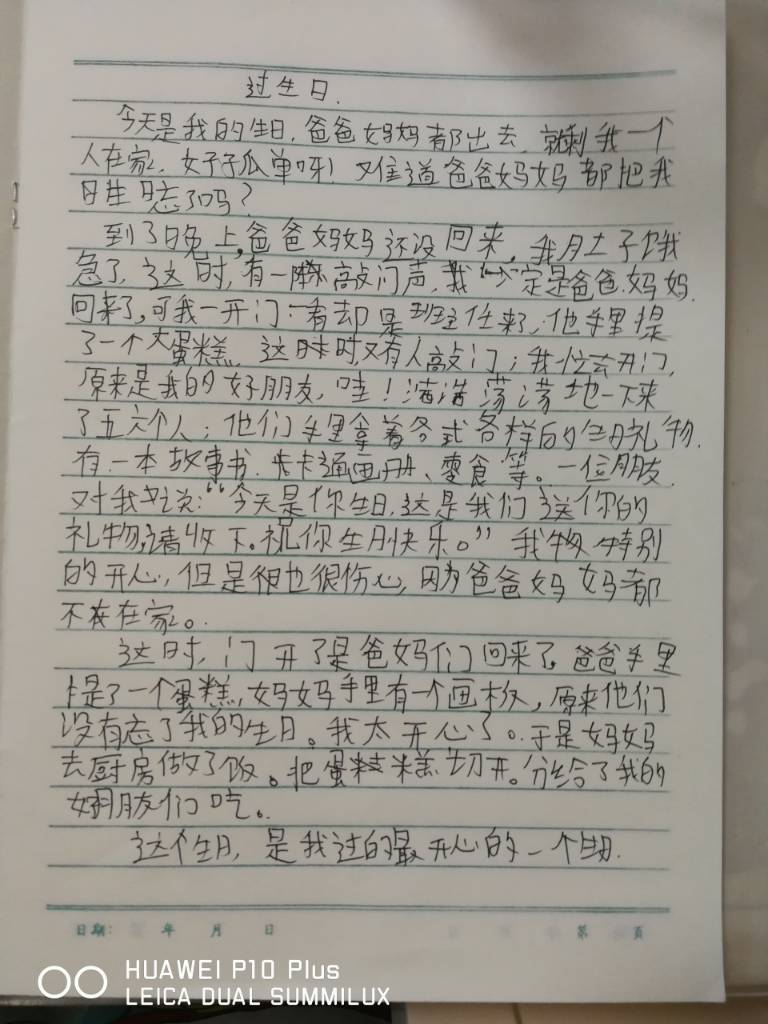 过生日.
今天是我的生日,爸爸妈妈都出去,就剩我一个
人在家,好孤单呀!难道爸爸妈妈都把我
日生日忘了吗?
到了晚上,爸爸妈妈还没回来,我肚子饿
急了,这时,有一敲门声,我定是爸爸妈妈
回来了,可我一开门一看却是班主任来了,他手里提
了一个大蛋糕,这时又有人敲门;我忙去开门,
原来是我的好朋友,哇!浩浩荡荡地一下来
了五六个人;他们手里拿着各式各样的生日礼物,
有一本故事书、卡通画册、零食等。一位朋友
对我说:“今天是你生日,这是我们送你的
礼物,请收下。祝你生日快乐。”我特别
的开心,但是也很伤心,因为爸爸妈妈都
不在家。
这时,门开了是爸妈们回来了,爸爸手里
提了一个蛋糕,妈妈手里有一个画板,原来他们
没有忘了我的生日。我太开心了。于是妈妈
去厨房做了饭。把蛋糕切开。分给了我的
朋友们吃。
这个生日,是我过的最开心的一个生日.
日期: 年 月 日 第 页
HUAWEI P10 Plus
LEICA DUAL SUMMILUX